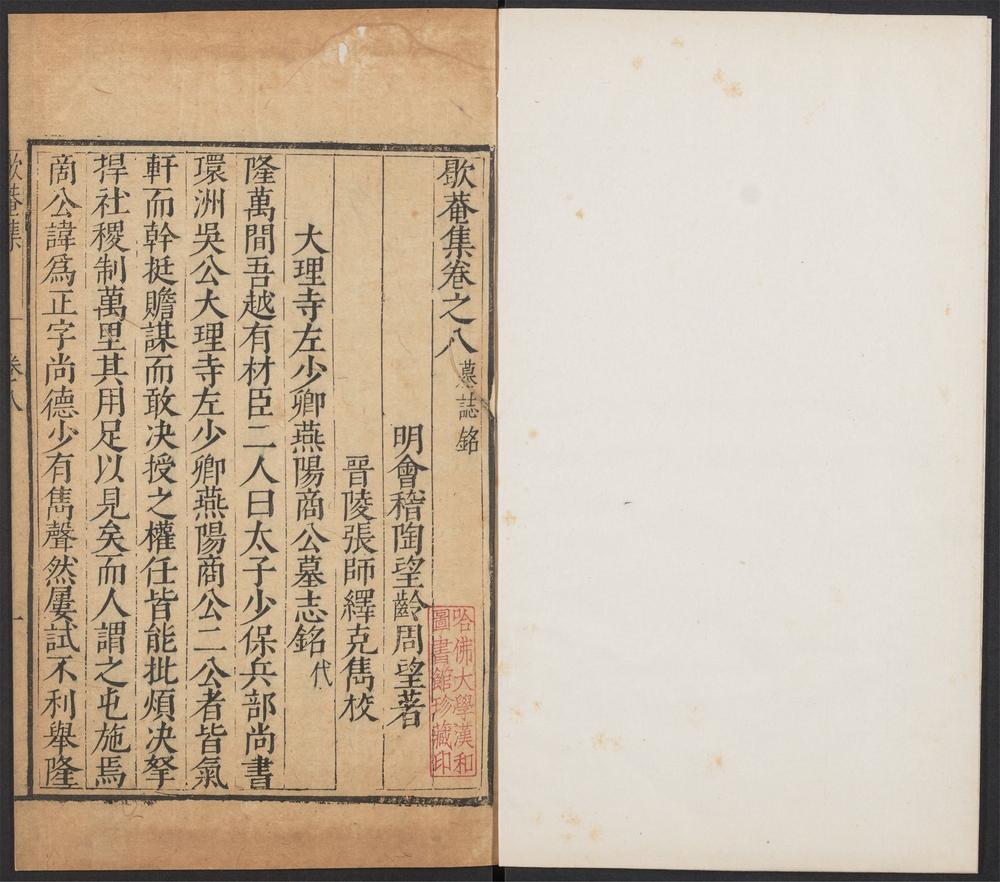 歇菴集卷之八 墓誌銘
明會稽陶望齡周望著
晉陵張師繹克雋校
大理寺左少卿燕陽商公墓志銘 代
隆萬間吾越有材臣二人曰太子少保兵部尚書
環洲吳公大理寺左少卿燕陽商公二公者皆氣
軒而幹挺贍謀而敢决授之權任皆能批煩决拏
捍社稷制萬里其用足以見矣而人謂之屯施焉
商公諱爲正字尚德少有雋聲然屢試不利舉隆
歇菴集
卷八
一
哈佛大學漢和
圖書館珍藏印